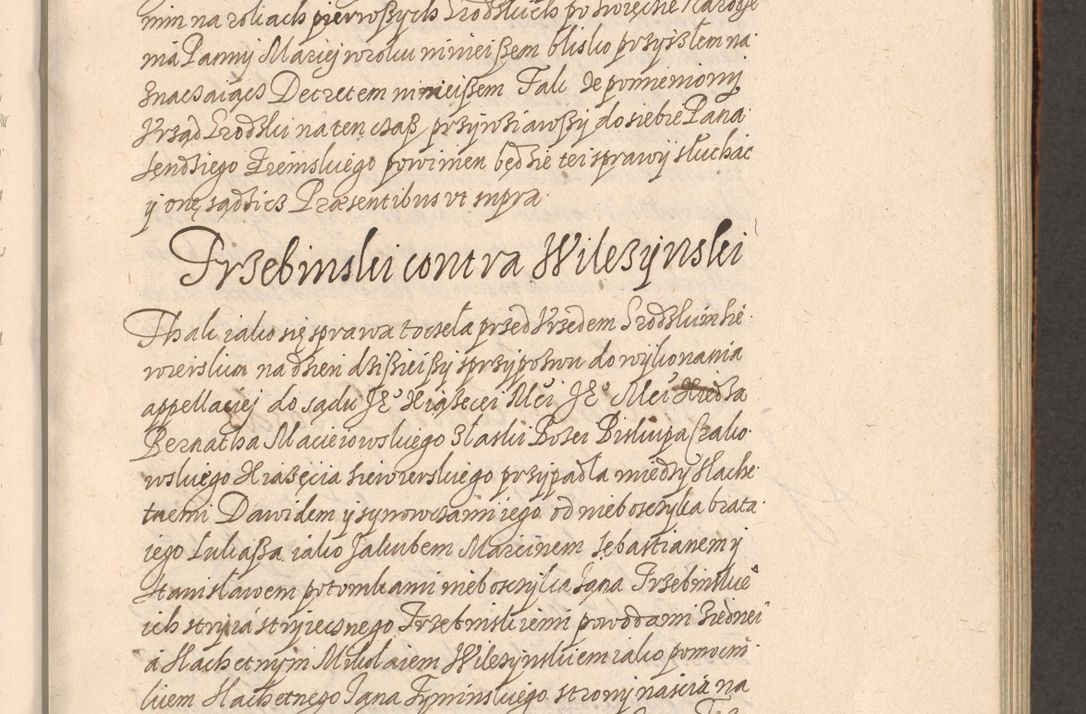 min na rokach pierwßych Grodzkich po Swięcie Narodze
nia Panny Mariej w roku ninieißem blisko przyszłem na
znaczaiącz Decretem ninieißem Tak ze pomieniony
Vrząd Grodzki na ten czaß przywziawßy do siebie Pana
Sendziego Ziemskiego powinien będzie tei sprawy słuchac
y onę sądzicz Præsentibus vt supra
Trzebinski contra Wilczynski
Thak iako się sprawa toczeła przed Vrzedem Grodzkim Sie
wierskim na dzien dzisieißy s przypozwu do wykonania
appellaciej do sądu Je° Xiążecei Mci Je° Mci Xiedza
Bernatha Macieiowskiego z łaski Bozei Biskupa Crako
wskiego Xiazęcia Siewierskiego przypadła miedzy Slache
tnemi Dawidem y synowczami iego od nieboszczyka brata
iego Lukaßa iako Jakubem Marcinem Sebastianem y
Stanisławem potomkami nieboszczyka Jana Trzebinskie°
ich stryia stryiecznego Trzebinskiemi powodami z iednei
a Slachetnym Mikolaiem Wilczynskiem iako pomocni
kiem Slachetnego Jana Zyminskiego strony nascia na